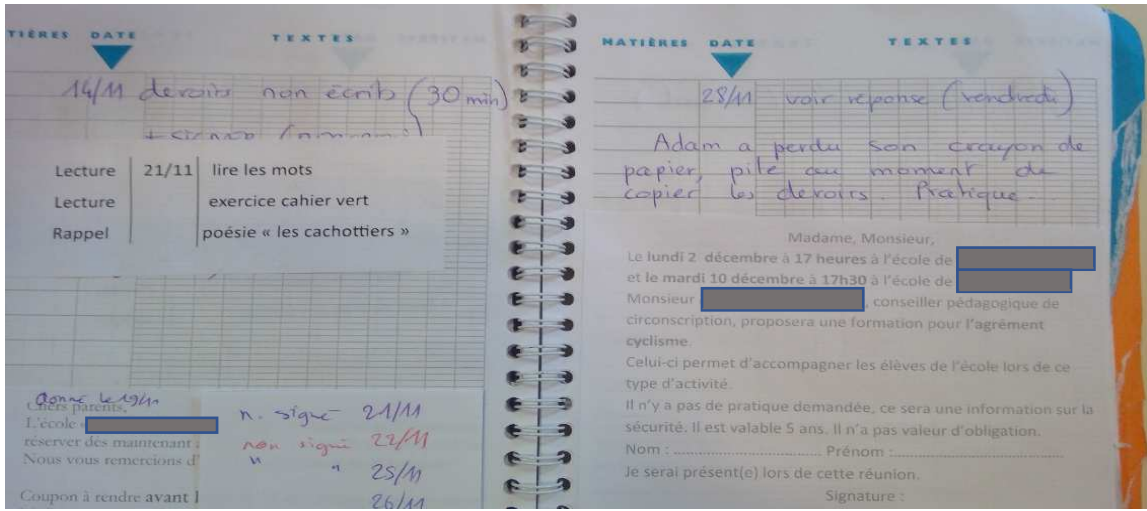 MATIÈRES DATE TEXTES
14/11 devoirs non écrits (30 min)
Lecture 21/11 lire les mots
Lecture exercice cahier vert
Rappel poésie « les cachottiers »
donné le 19/11
Chers parents,
L'école
réserver dès maintenant
Nous vous remercions d'
Coupon à rendre avant l
n. signé 21/11
non signé 22/11
" " 25/11
26/11
MATIÈRES DATE TEXTES
28/11 voir réponse (vendredi)
Adam a perdu son crayon de
papier, pile au moment de
copier les devoirs. Pratique...
Madame, Monsieur,
Le lundi 2 décembre à 17 heures à l'école de
et le mardi 10 décembre à 17h30 à l'école de
Monsieur , conseiller pédagogique de
circonscription, proposera une formation pour l'agrément
cyclisme.
Celui-ci permet d'accompagner les élèves de l'école lors de ce
type d'activité.
Il n'y a pas de pratique demandée, ce sera une information sur la
sécurité. Il est valable 5 ans. Il n'a pas valeur d'obligation.
Nom : .................................. Prénom : ..........................................
Je serai présent(e) lors de cette réunion.
Signature :